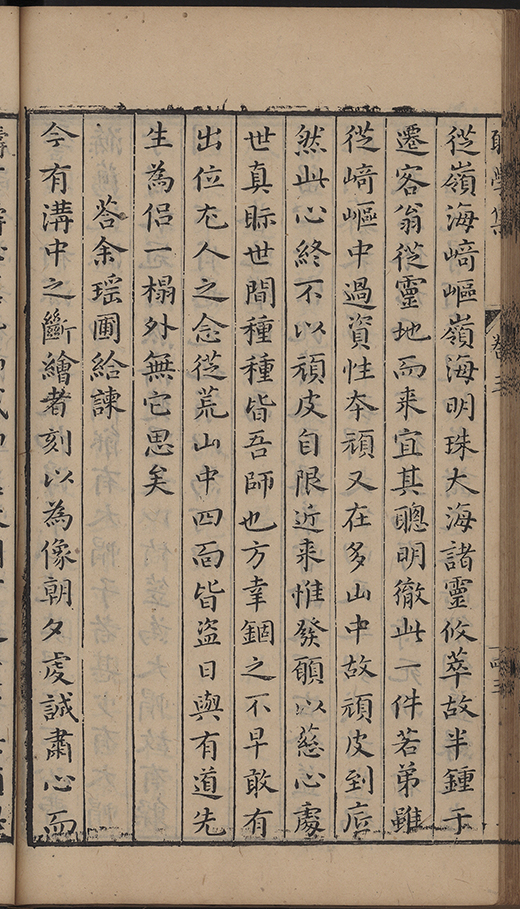 學集
卷三
從嶺海崎嶇嶺海明珠大海諸靈攸萃故半鍾于
遷客翁從靈地而来宜其聰明徹此一件若弟雖
從崎嶇中過資性夲頑又在多山中故頑皮到底
然此心終不以頑皮自限近来惟發願以慈心處
世真眎世間種種皆吾師也方幸錮之不早敢有
出位尤人之念從荒山中四面皆盜日與有道先
生為侣一榻外無它思矣
荅余瑶圃給諫
今有溝中之斷繪者刻以為像朝夕虔誠肅心而